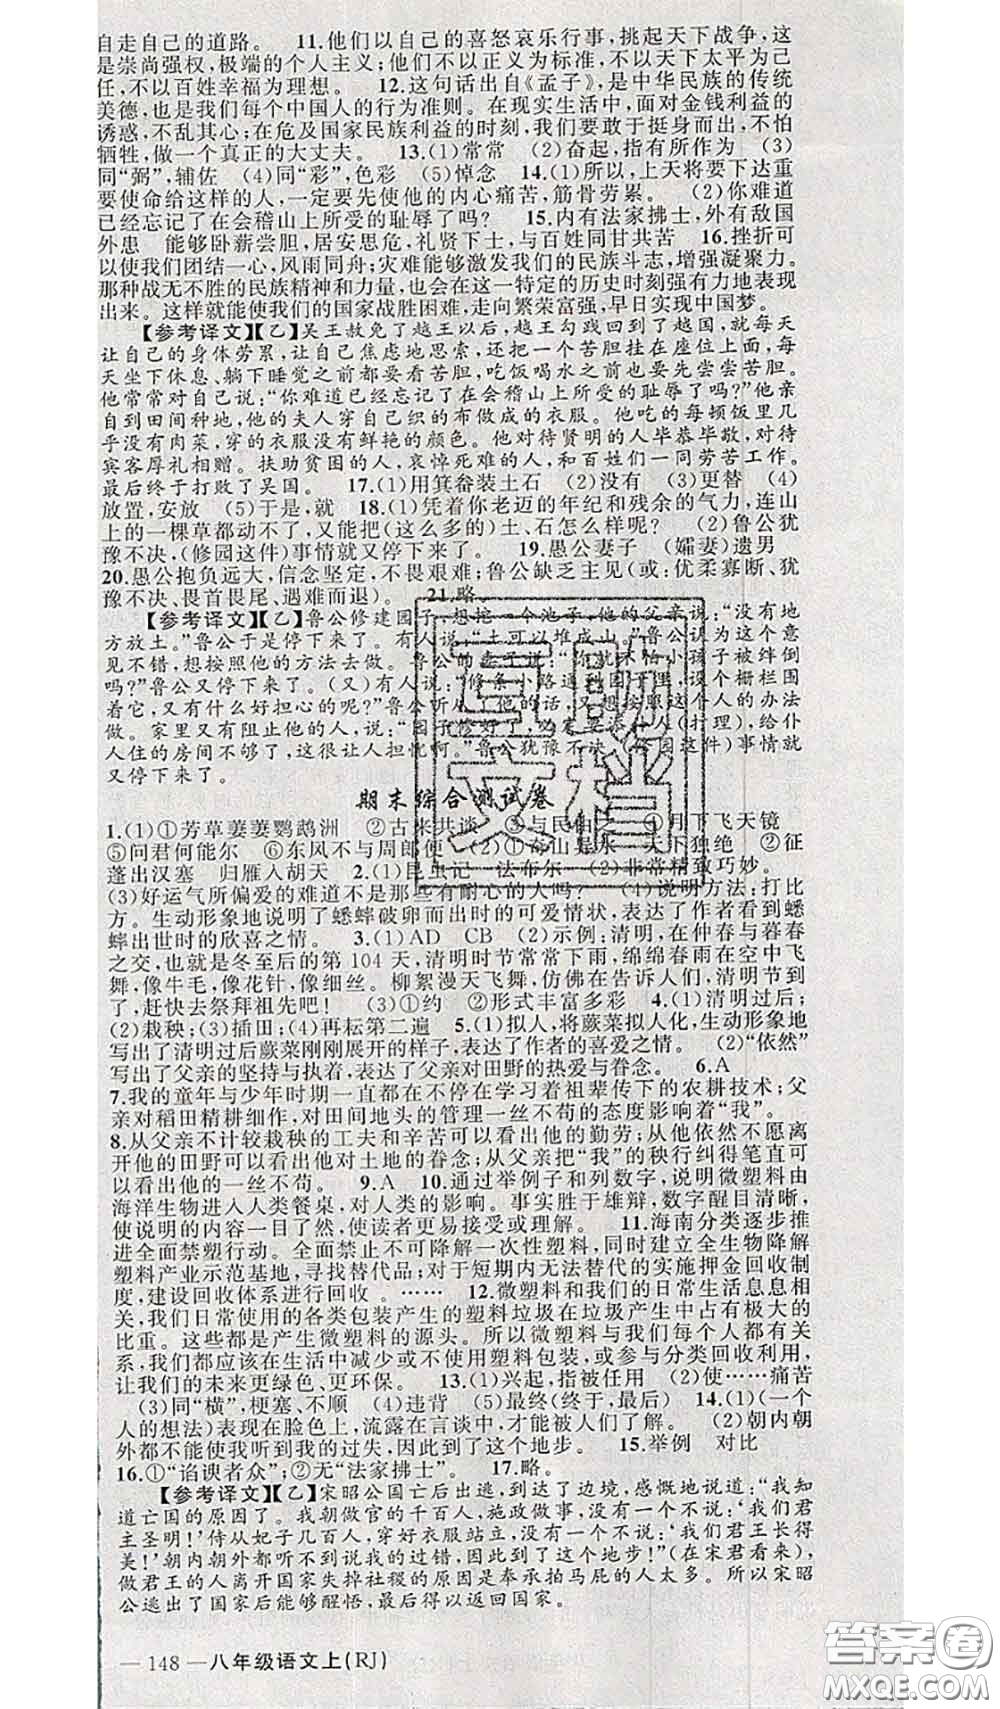 自走自己的道路。 11.他们以自己的喜怒哀乐行事,挑起天下战争,这
是崇尚强权,极端的个人主义;他们不以正义为标准,不以天下太平为己
任,不以百姓幸福为理想。 12.这句话出自《孟子》,是中华民族的传统
美德,也是我们每个中国人的行为准则。在现实生活中,面对金钱利益的
诱惑,不乱其心;在危及国家民族利益的时刻,我们要敢于挺身而出,不怕
牺牲,做一个真正的大丈夫。 13.(1)常常 (2)奋起,指有所作为 (3)
同“弼”,辅佐 (4)同“彩”,色彩 (5)悼念 14.(1)所以,上天将要下达重
要使命给这样的人,一定要先使他的内心痛苦,筋骨劳累。 (2)你难道
已经忘记了在会稽山上所受的耻辱了吗? 15.内有法家拂士,外有敌国
外患 能够卧薪尝胆,居安思危,礼贤下士,与百姓同甘共苦 16.挫折可
以使我们团结一心,风雨同舟;灾难能够激发我们的民族斗志,增强凝聚力。
那种战无不胜的民族精神和力量,也会在这一特定的历史时刻强有力地表现
出来。这样就能使我们的国家战胜困难,走向繁荣富强,早日实现中国梦。
【参考译文】【乙】吴王赦免了越王以后,越王勾践回到了越国,就每天
让自己的身体劳累,让自己焦虑地思索,还把一个苦胆挂在座位上面,每
天坐下休息、躺下睡觉之前都要看看苦胆,吃饭喝水之前也要先尝尝苦胆。
他常常对自己说:“你难道已经忘记了在会稽山上所受的耻辱了吗?”他亲
自到田间种地,他的夫人穿自己织的布做成的衣服。他吃的每顿饭里几
乎没有肉菜,穿的衣服没有鲜艳的颜色。他对待贤明的人毕恭毕敬,对待
宾客厚礼相赠。扶助贫困的人,哀悼死难的人,和百姓们一同劳苦工作。
最后终于打败了吴国。 17.(1)用箕畚装土石 (2)没有 (3)更替 (4)
放置,安放 (5)于是,就 18.(1)凭着你老迈的年纪和残余的气力,连山
上的一棵草都动不了,又能把(这么多的)土、石怎么样呢? (2)鲁公犹
豫不决,(修园这件)事情就又停下来了。 19.愚公妻子 (孀妻)遗男
20.愚公抱负远大,信念坚定,不畏艰难;鲁公缺乏主见(或:优柔寡断、犹
豫不决、畏首畏尾、遇难而退)。 21.略
【参考译文】【乙】鲁公修建园子,想挖一个池子,他的父亲说:“没有地
方放土。”鲁公于是停下来了。有人说:“土可以堆成山。”鲁公认为这个意
见不错,想按照他的方法去做。鲁公的妻子说:“你就不怕小孩子被绊倒
吗?”鲁公又停下来了。(又)有人说:“修条小路通到园子里,设个栅栏围
着它,又有什么好担心的呢?”鲁公听从了他的话,又想按照这个人的办法
做。家里又有阻止他的人,说:“园子修好了,必定要添佣人(打理),给仆
人住的房间不够了,这很让人担忧啊。”鲁公犹豫不决,(修园这件)事情就
又停下来了。
期末综合测试卷
1.(1)①芳草萋萋鹦鹉洲 ②古来共谈 ③与民由之 ④月下飞天镜
⑤问君何能尔 ⑥东风不与周郎便 (2)①奇山异水 天下独绝 ②征
蓬出汉塞 归雁入胡天 2.(1)昆虫记 法布尔 (2)非常精致巧妙。
(3)好运气所偏爱的难道不是那些有耐心的人吗? (4)说明方法:打比
方。生动形象地说明了蟋蟀破卵而出时的可爱情状,表达了作者看到蟋
蟀出世时的欣喜之情。 3.(1)AD CB (2)示例:清明,在仲春与暮春
之交,也就是冬至后的第 104 天,清明时节常常下雨,绵绵春雨在空中飞
舞,像牛毛,像花针,像细丝。柳絮漫天飞舞,仿佛在告诉人们,清明节到
了,赶快去祭拜祖先吧! (3)①约 ②形式丰富多彩 4.(1)清明过后;
(2)栽秧;(3)插田;(4)再耘第二遍 5.(1)拟人,将蕨菜拟人化,生动形象地
写出了清明过后蕨菜刚刚展开的样子,表达了作者的喜爱之情。 (2)“依然”
写出了父亲的坚持与执着,表达了父亲对田野的热爱与眷念。 6.A
7.我的童年与少年时期一直都在不停在学习着祖辈传下的农耕技术;父
亲对稻田精耕细作,对田间地头的管理一丝不苟的态度影响着“我”。
8.从父亲不计较栽秧的工夫和辛苦可以看出他的勤劳;从他依然不愿离
开他的田野可以看出他对土地的眷念;从父亲把“我”的秧行纠得笔直可
以看出他的一丝不苟。 9.A 10.通过举例子和列数字,说明微塑料由
海洋生物进入人类餐桌,对人类的影响。事实胜于雄辩,数字醒目清晰,
使说明的内容一目了然,使读者更易接受或理解。 11.海南分类逐步推
进全面禁塑行动。全面禁止不可降解一次性塑料,同时建立全生物降解
塑料产业示范基地,寻找替代品;对于短期内无法替代的实施押金回收制
度,建设回收体系进行回收 。…… 12.微塑料和我们的日常生活息息相
关,我们日常使用的各类包装产生的塑料垃圾在垃圾产生中占有极大的
比重。这些都是产生微塑料的源头。所以微塑料与我们每个人都有关
系,我们都应该在生活中减少或不使用塑料包装,或参与分类回收利用,
让我们的未来更绿色、更环保。 13.(1)兴起,指被任用 (2)使……痛苦
(3)同“横”,梗塞、不顺 (4)违背 (5)最终(终于、最后) 14.(1)(一个
人的想法)表现在脸色上,流露在言谈中,才能被人们了解。 (2)朝内朝
外都不能使我听到我的过失,因此到了这个地步。 15.举例 对比
16.①“谄谀者众”;②无“法家拂士”。 17.略。
【参考译文】【乙】宋昭公国亡后出逃,到达了边境,感慨地说道:“我知
道亡国的原因了。我朝做官的千百人,施政做事,没有一个不说:‘我们君
主圣明!’侍从妃子几百人,穿好衣服站立,没有一个不说:‘我们君王长得
美!’朝内朝外都听不到说我的过错,因此到了这个地步!”(在宋君看来),
做君王的人离开国家失掉社稷的原因是奉承拍马屁的人太多。所以宋昭
公逃出了国家后能够醒悟,最后得以返回国家。
— 148 —八年级语文上(RJ)
答案圈
MXQE.COM